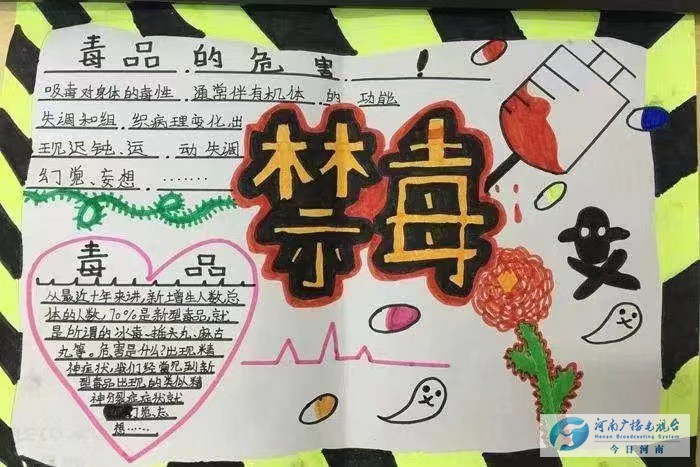 毒品的危害!
吸毒对身体的毒性,通常伴有机体的功能
失调和组织病理变化出
现迟钝、运动失调
幻觉、妄想……
禁毒
毒品
从最近十年来讲,新增生人数总
体的人数,70%是新型毒品,就
是所谓的冰毒、摇头丸、麻古
丸等。危害是什么?出现精
神症状,我们经常见到新
型毒品出现的类似精
神分裂症症状就
幻觉妄
想……
河南广播电视台
Henan Broadcasting System
今日河南